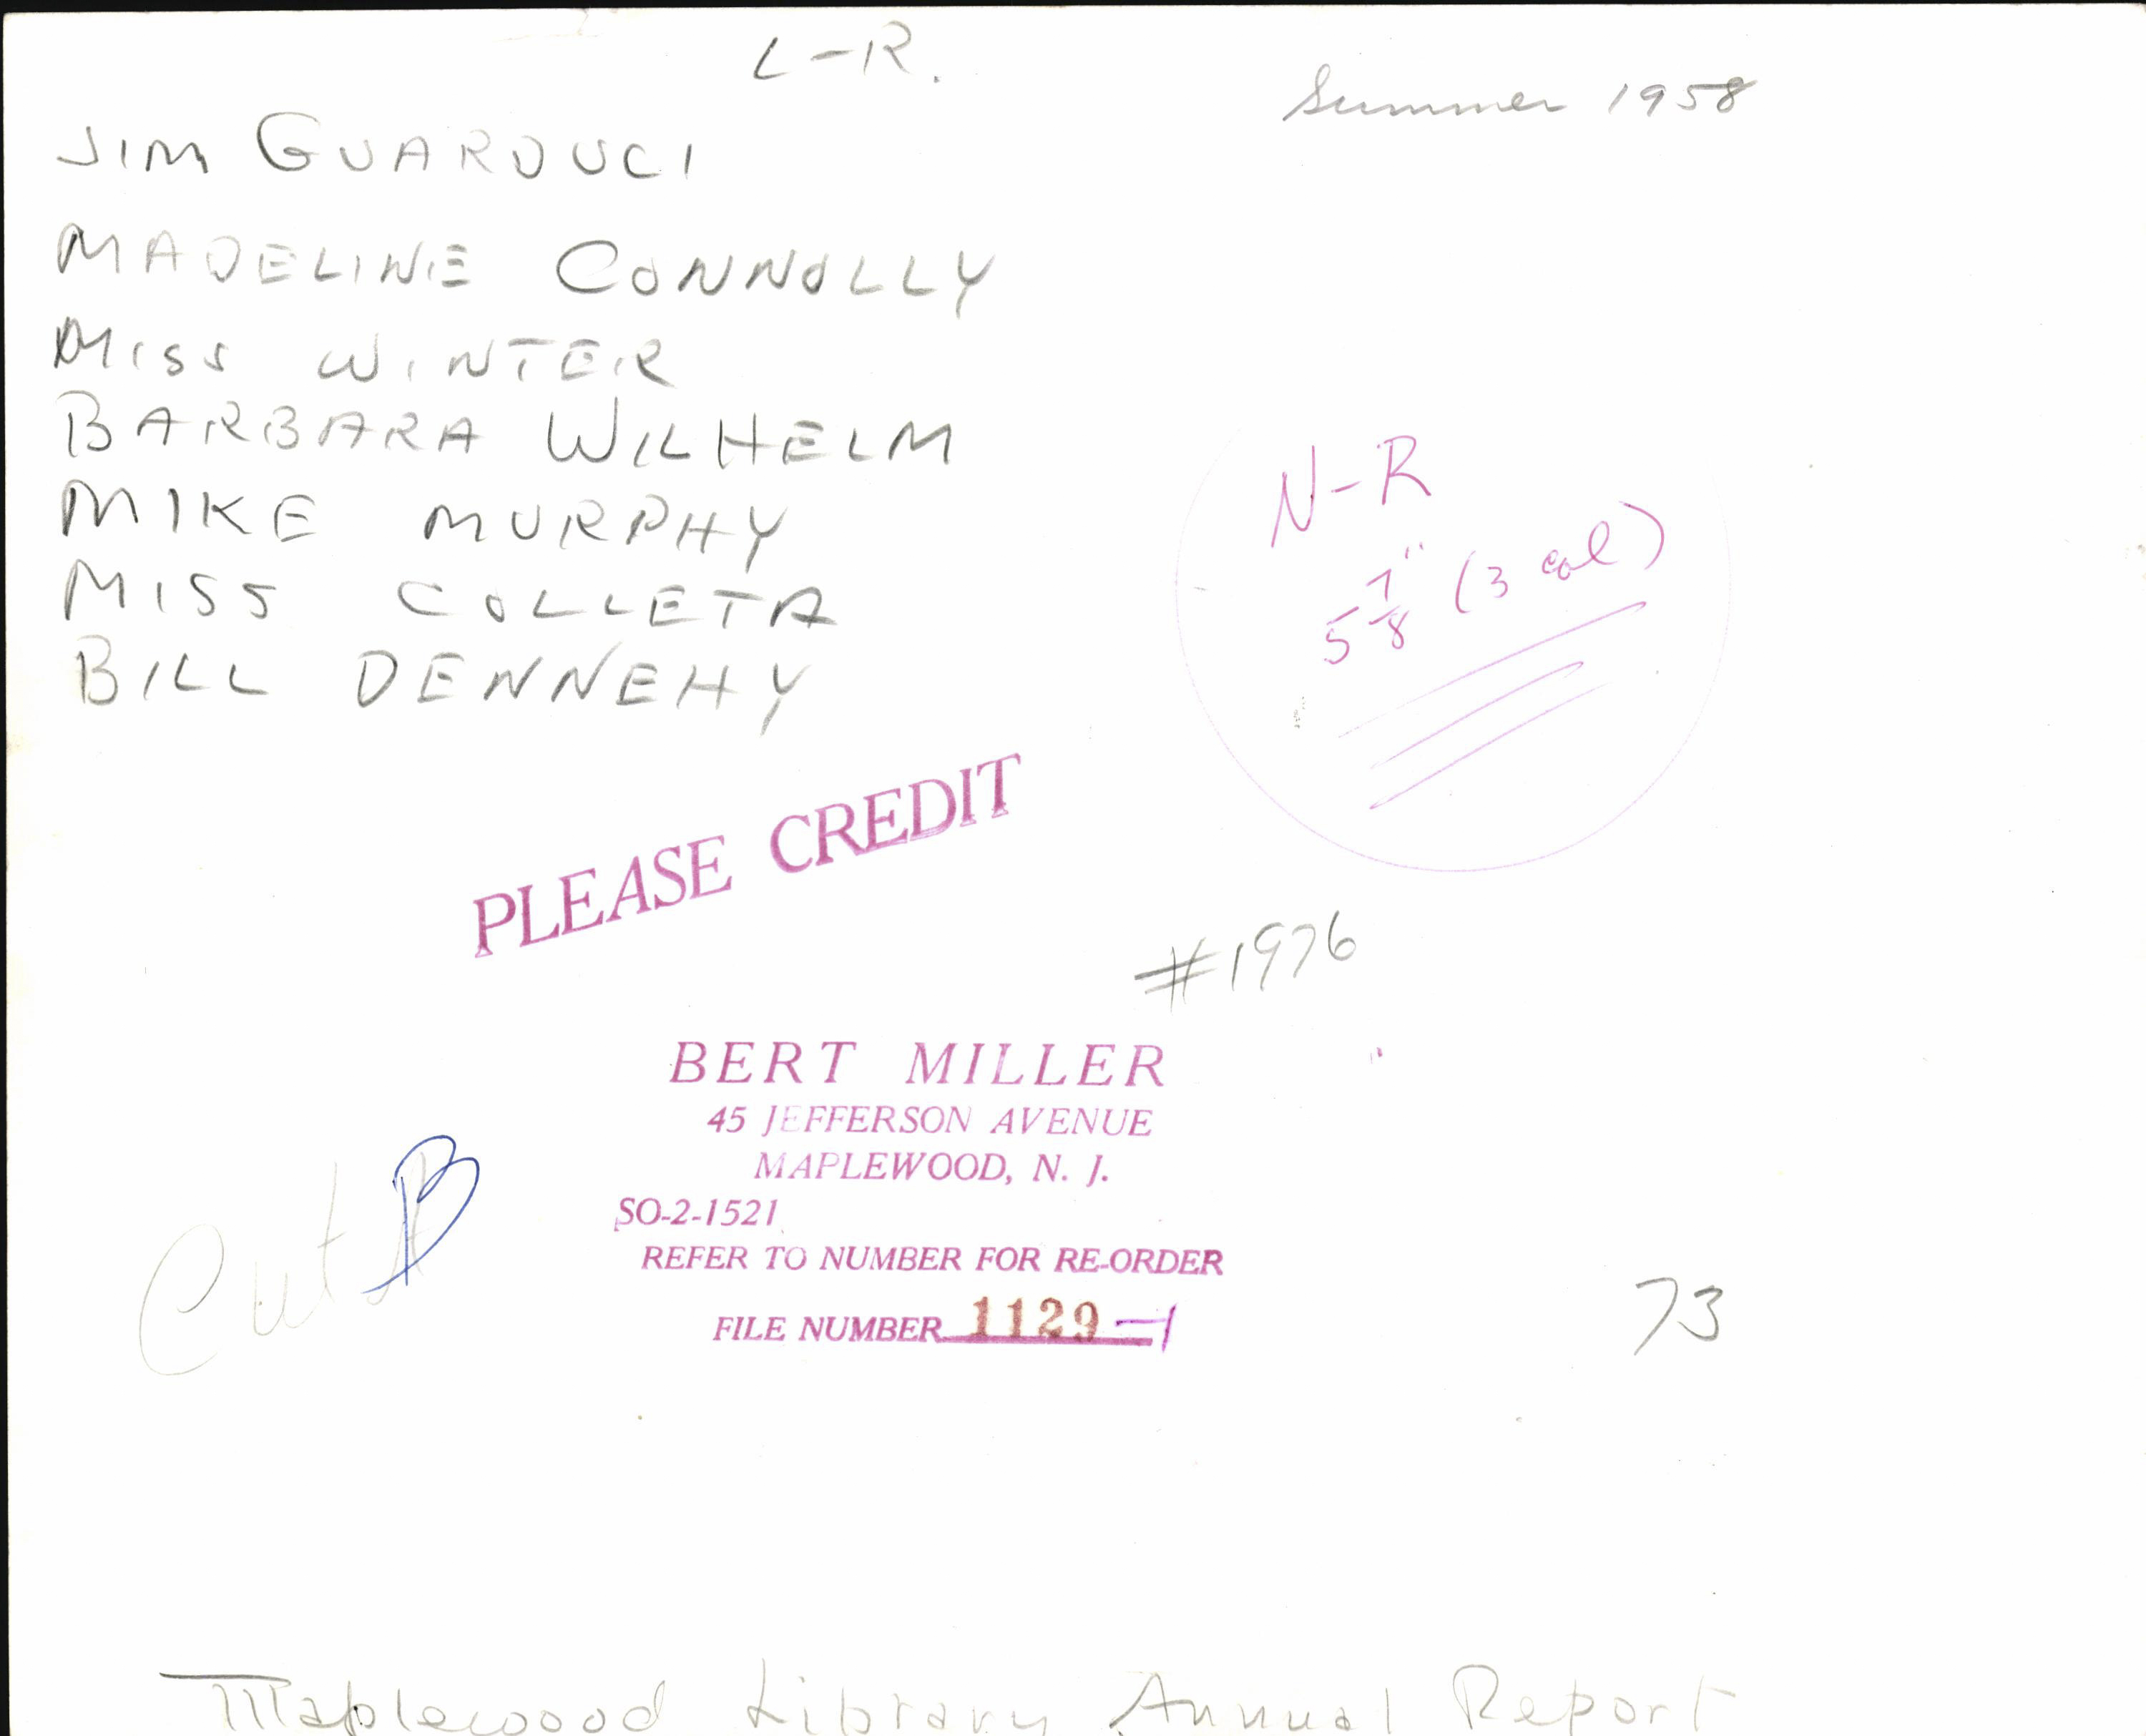 L-R.
Summer 1958
JIM GUARDUCI
MADELINE CONNOLLY
MISS WINTER
BARBARA WILHELM
MIKE MURPHY
MISS COLLETA
BILL DENNEHY
N-R
5 7/8" (3 col)
PLEASE CREDIT
#1976
BERT MILLER
45 JEFFERSON AVENUE
MAPLEWOOD, N. J.
SO-2-1521
REFER TO NUMBER FOR RE-ORDER
FILE NUMBER 1129-1
Cut B
73
Maplewood Library Annual Report